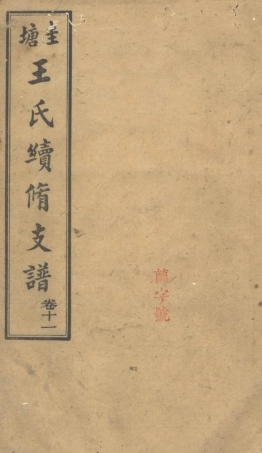 圭塘
王氏續脩支譜
卷十一
蘭字號